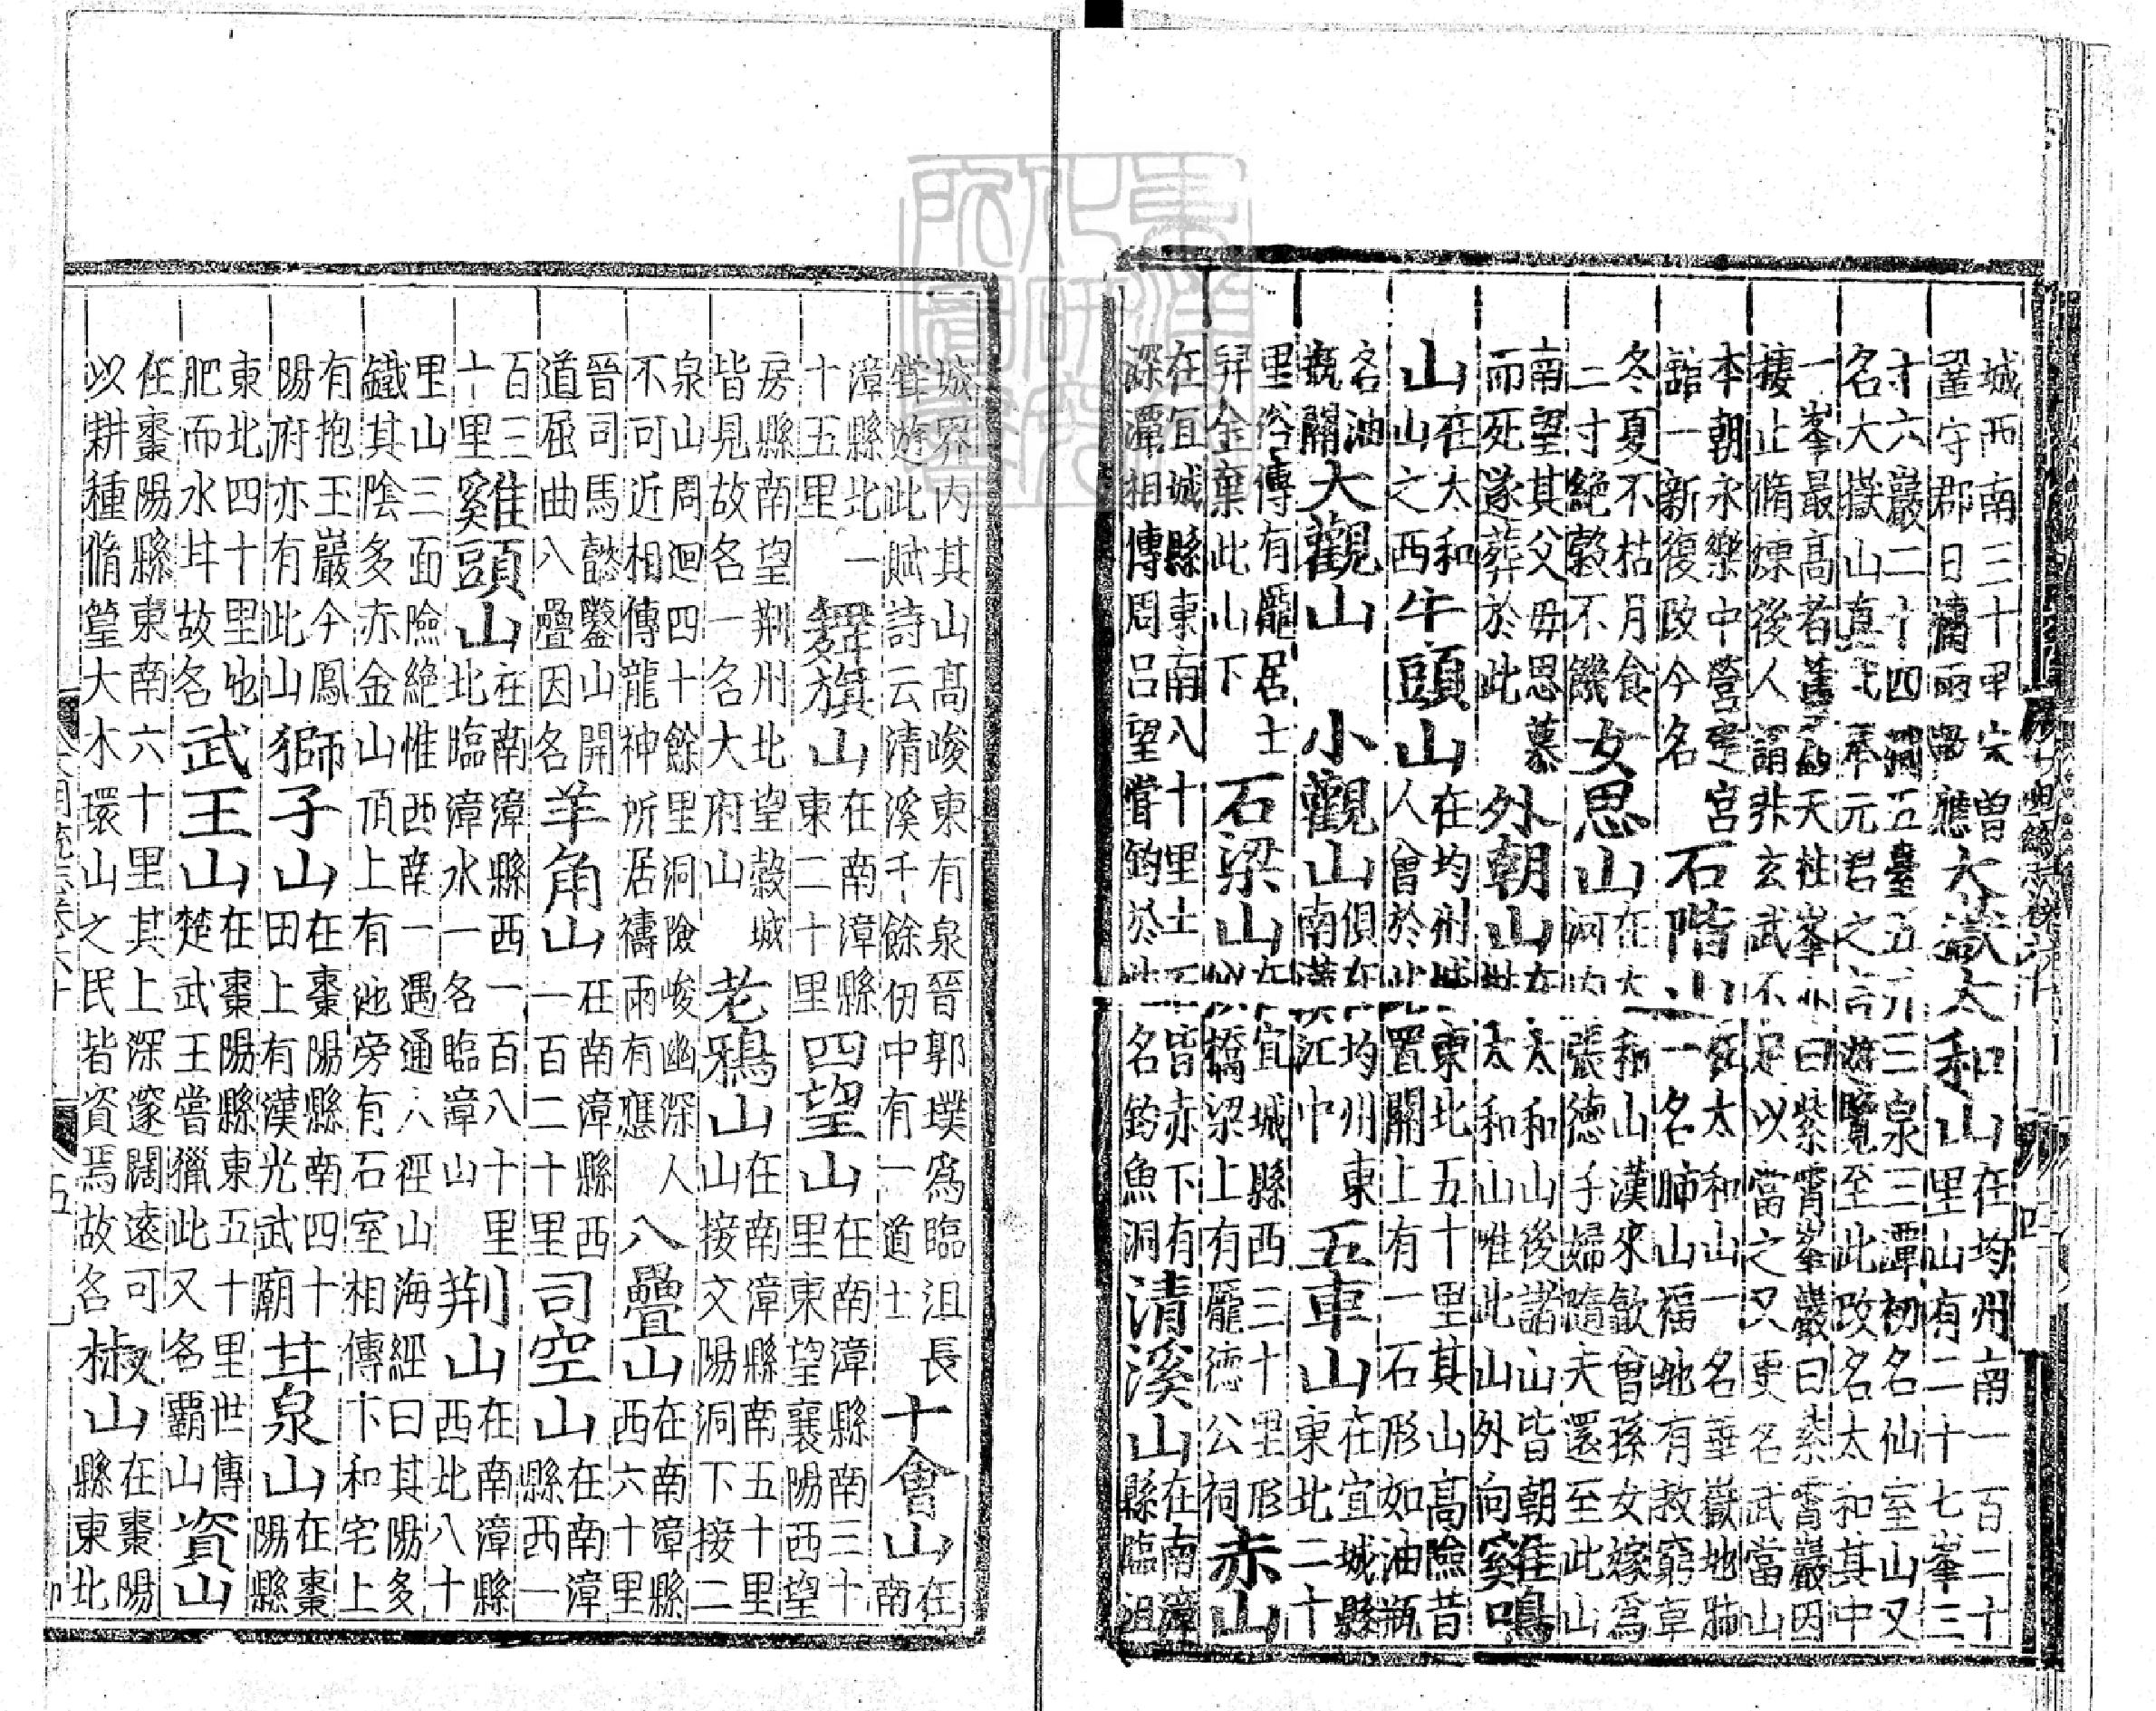 城西南三十里宋曾
鞏守郡日禱雨屢應
大嶽太和山
在均州南一百二十
里山有二十七峯三
十六巖二十四澗五臺五井三泉三潭初名仙室山又
名大嶽山真武奉元君之言遊覽至此改名太和其中
一峯最高者天柱峯曰紫霄峯巖曰紫霄巖因
棲止脩煉後人謂非玄武不足以當之又更名武當山
本朝永樂中營建宮
館一新復改今名
石階山
在太和山一名華嶽地肺
一名肺山福地有救窮草
冬夏不枯月食
二寸絕穀不饑
女思山
在太和山漢來歙曾孫女嫁爲
河内張德子婦隨夫還至此山
南望其父母思慕
而死遂葬於此
外朝山
在太和山後諸山皆朝
太和山唯此山外向
雞鳴
山
在太和
山之西
牛頭山
在均州城東北五十里其山高險昔
人會於此置關上有一石形如油瓶
名油
瓶關
大觀山
小觀山
俱在均州東
南漢江中
五車山
在宜城縣
東北二十
里俗傳有龐居士
舁金棄此山下
石梁山
在宜城縣西三十里形
似橋梁上有龐德公祠
赤山
在宜城縣東南八十里土石皆赤下有
深潭相傳周呂望嘗釣於此名釣魚洞
清溪山
在南漳
縣臨沮
城界内其山高峻東有泉晉郭璞爲臨沮長
嘗遊此賦詩云清溪千餘仞中有一道士
十會山
在
南
漳縣北一
十五里
舞旗山
在南漳縣
東二十里
四望山
在南漳縣南三十
里東望襄陽西望
房縣南望荆州北望穀城
皆見故名一名大府山
老鴉山
在南漳縣南五十里
山接交陽洞下接二
泉山周迴四十餘里洞險峻幽深人
不可近相傳龍神所居禱雨有應
八疊山
在南漳縣
西六十里
晉司馬懿鑿山開
道屈曲八疊因名
羊角山
在南漳縣西
一百二十里
司空山
在南漳
縣西一
百三
十里
雞頭山
在南漳縣西一百八十里
北臨漳水一名臨漳山
荆山
在南漳縣
西北八十
里山三面險絕惟西南一遇通人徑山海經曰其陽多
鐵其陰多赤金山頂上有池旁有石室相傳卞和宅上
有抱玉巖今鳳
陽府亦有此山
獅子山
在棗陽縣南四十
田上有漢光武廟
甘泉山
在棗
陽縣
東北四十里地
肥而水甘故名
武王山
在棗陽縣東五十里世傳
楚武王嘗獵此又名霸山
資山
在棗陽縣東南六十里其上深邃闊遠可
以耕種脩篁大木環山之民皆資焉故名
椒山
在棗陽
縣東北